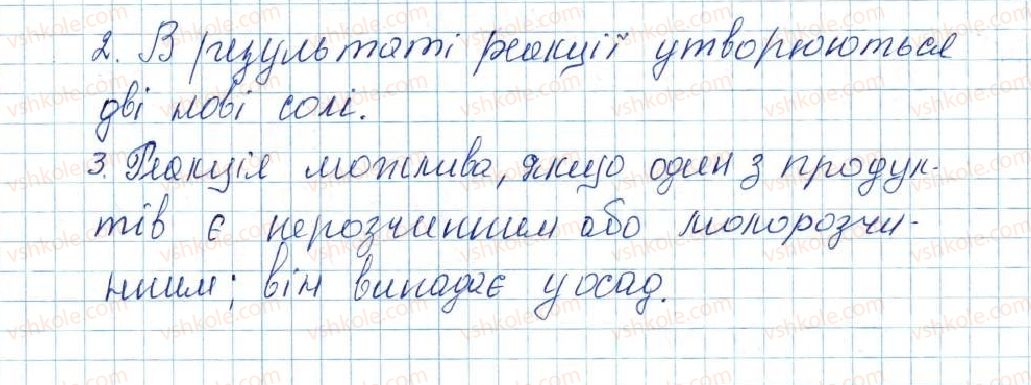 2. В результаті реакції утворюються
дві нові солі.
3. Реакція можлива, якщо один з продук-
тів є нерозчинним або малорозчи-
нним; він випадає у осад.
vshkole.com